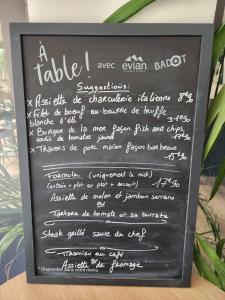 À
table! avec evian BADOIT
Suggestions:
x Assiette de charcuterie italienne 8€90
x Filet de boeuf au beurre de truffe
blanche d'été
x Burger de la mer façon fish and chips,
coulis de tomates jaune
x Travers de porc maison façon barbecue
15€90
Formule (uniquement le midi)
(entrée + plat ou plat + dessert) 17€90
Assiette de melon et jambon serrano
ou
Tartare de tomate et sa burrata
Steak grillé sauce du chef
Tiramisu au café
ou
Assiette de fromage
*Disponible dans notre menu